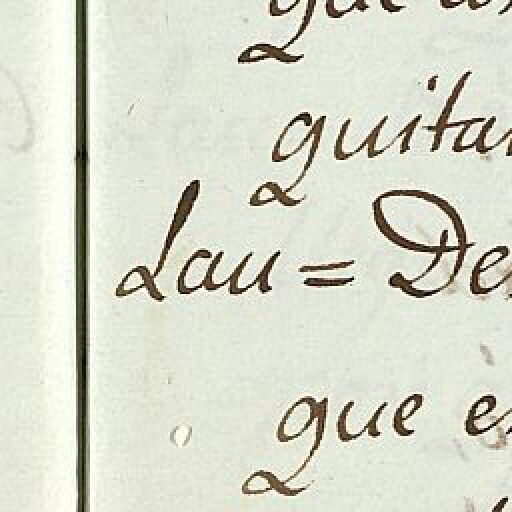 que
quitar
Lau = De
que es